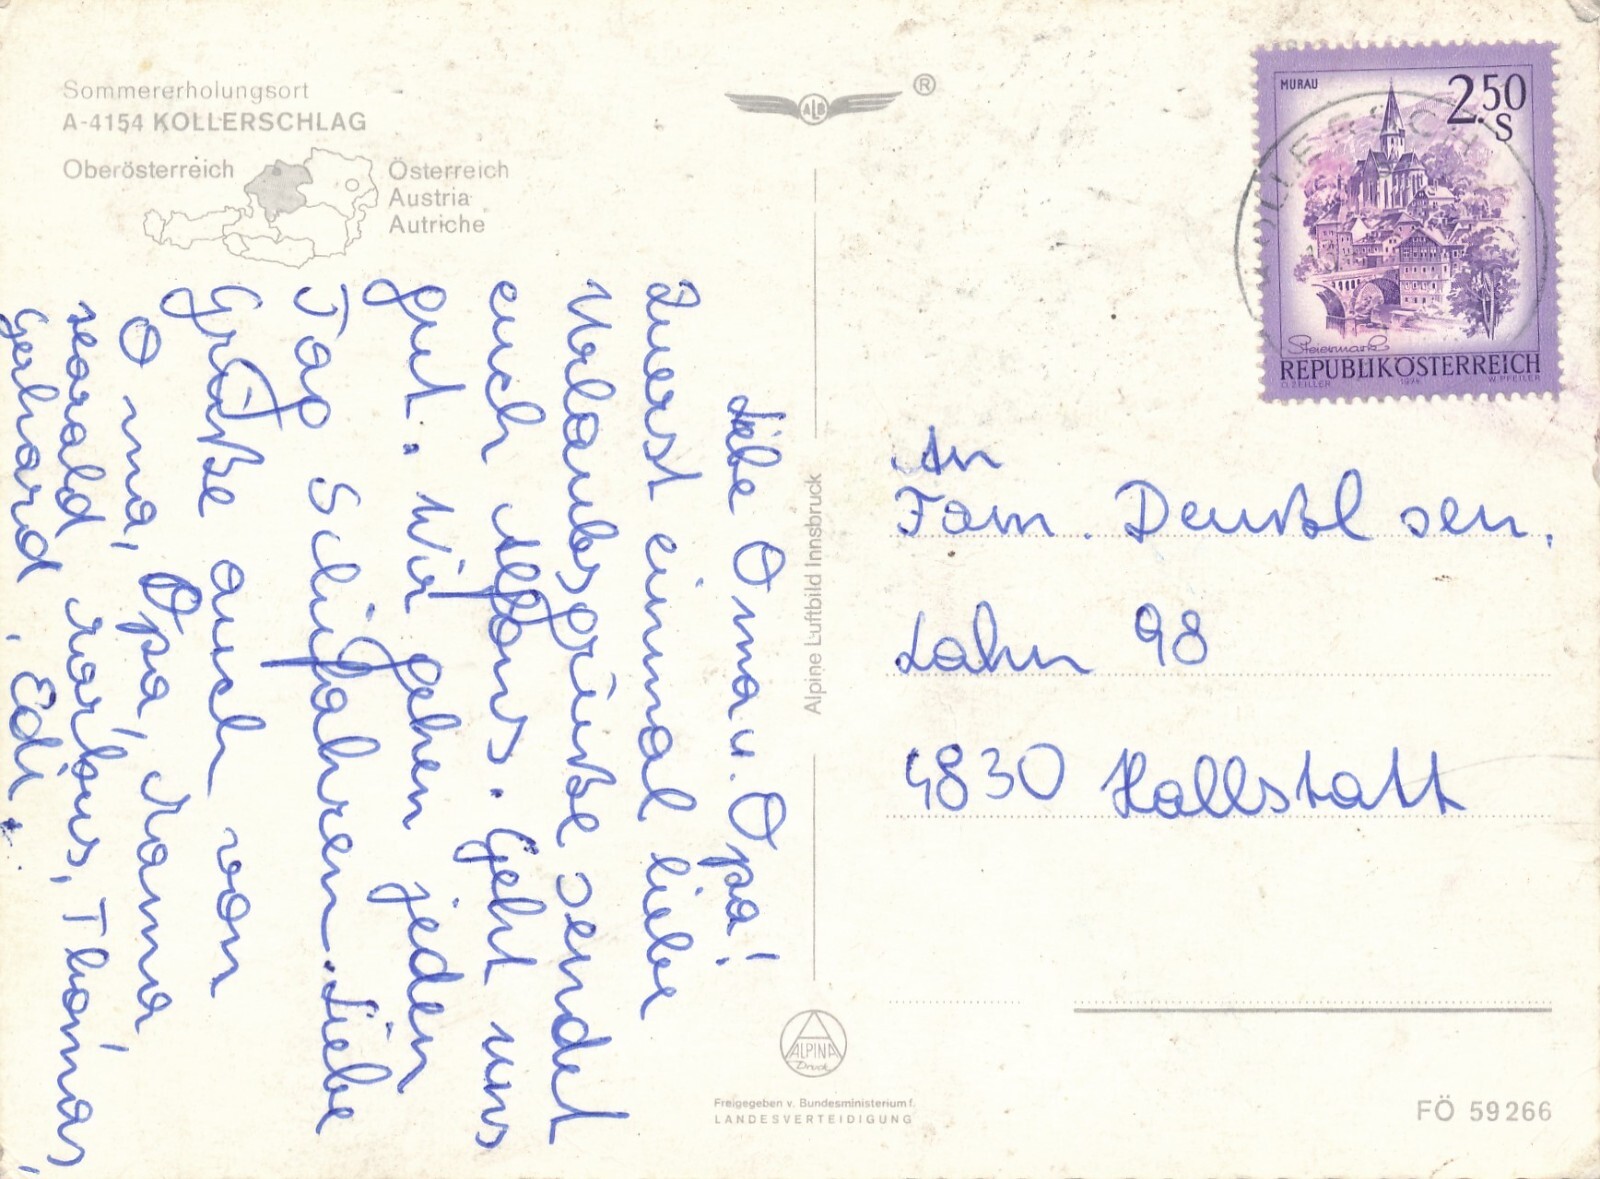 Sommererholungsort
A-4154 KOLLERSCHLAG
Oberösterreich
Österreich
Austria
Autriche
ALB
®
MURAU
2.50
S
Steiermark
REPUBLIK ÖSTERREICH
O. ZEILLER
1974
W. PFEILER
Liebe Oma u. Opa!
Zuerst einmal liebe
Urlaubsgrüße sendet
euch Alfons. Geht uns
gut. Wir gehen jeden
Tag Schifahren. Liebe
Grüße auch von
Oma, Opa, Mama,
Harald, Markus, Thomas,
Gerhard, Edi.
Alpine Luftbild Innsbruck
An
Fam. Deußl sen.
Lahn 98
4830 Hallstatt
ALPINA
Druck
Freigegeben v. Bundesministerium f.
LANDESVERTEIDIGUNG
FÖ 59266